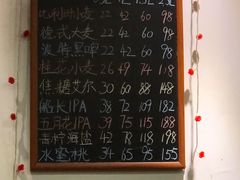 比利时小麦 22 42 60 98
德式大麦 22 42 60 98
波特黑啤 22 42 60 98
桂花小麦 26 49 74 118
焦糖艾尔 30 58 88 148
船长IPA 38 72 109 182
五月花IPA 39 75 113 188
青柠海盐 42 78 118 198
水蜜桃 34 65 95 155